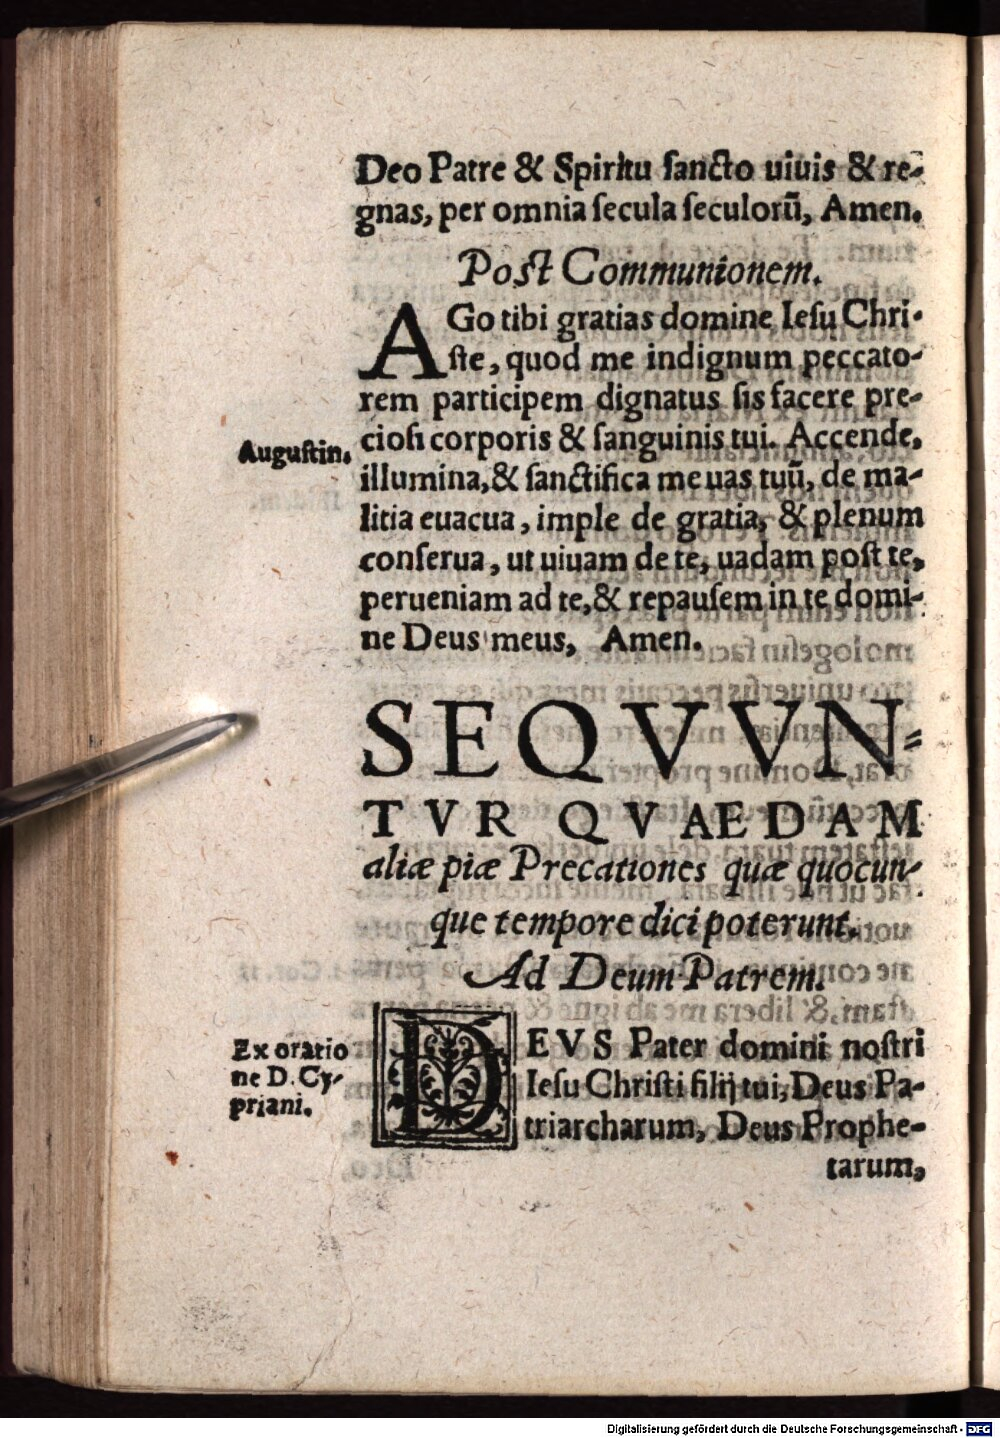 Deo Patre & Spiritu ſancto uiuis & re-
gnas, per omnia ſecula ſeculorũ, Amen.
Post Communionem.
AGo tibi gratias domine Ieſu Chri-
ſte, quod me indignum peccato-
rem participem dignatus ſis facere pre-
cioſi corporis & ſanguinis tui. Accende,
Auguſtin.
illumina, & ſanctifica me uas tuũ, de ma-
litia euacua, imple de gratia, & plenum
conſerua, ut uiuam de te, uadam poſt te,
perueniam ad te, & repauſem in te domi-
ne Deus meus, Amen.
SEQVVN-
TVR QVAEDAM
aliæ piæ Precationes quæ quocun-
que tempore dici poterunt.
Ad Deum Patrem.
Ex oratio
ne D. Cy-
priani.
DEVS Pater domini noſtri
Ieſu Chriſti filij tui, Deus Pa-
triarcharum, Deus Prophe-
tarum,
Digitalisierung gefördert durch die Deutsche Forschungsgemeinschaft - DFG